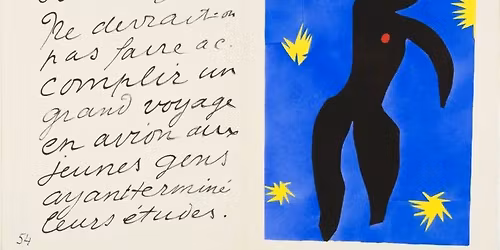 Ne devrait-on
pas faire ac-
complir un
grand voyage
en avion aux
jeunes gens
ayant terminé
leurs études.
54